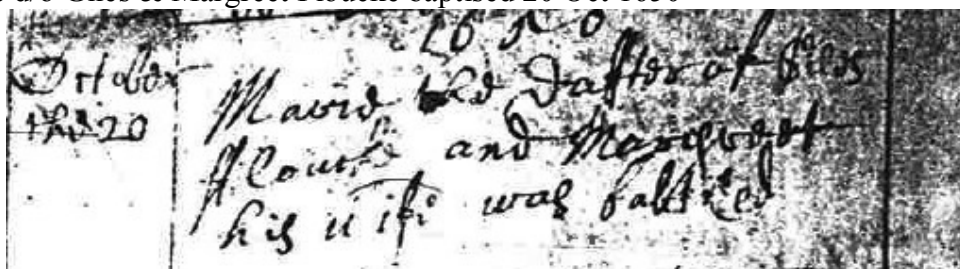 d/o Giles & Margreet baptised 20 Oct 1650
1650
October
the 20
Marie the Dafter of Giles
and Margreet
his wife was babtized